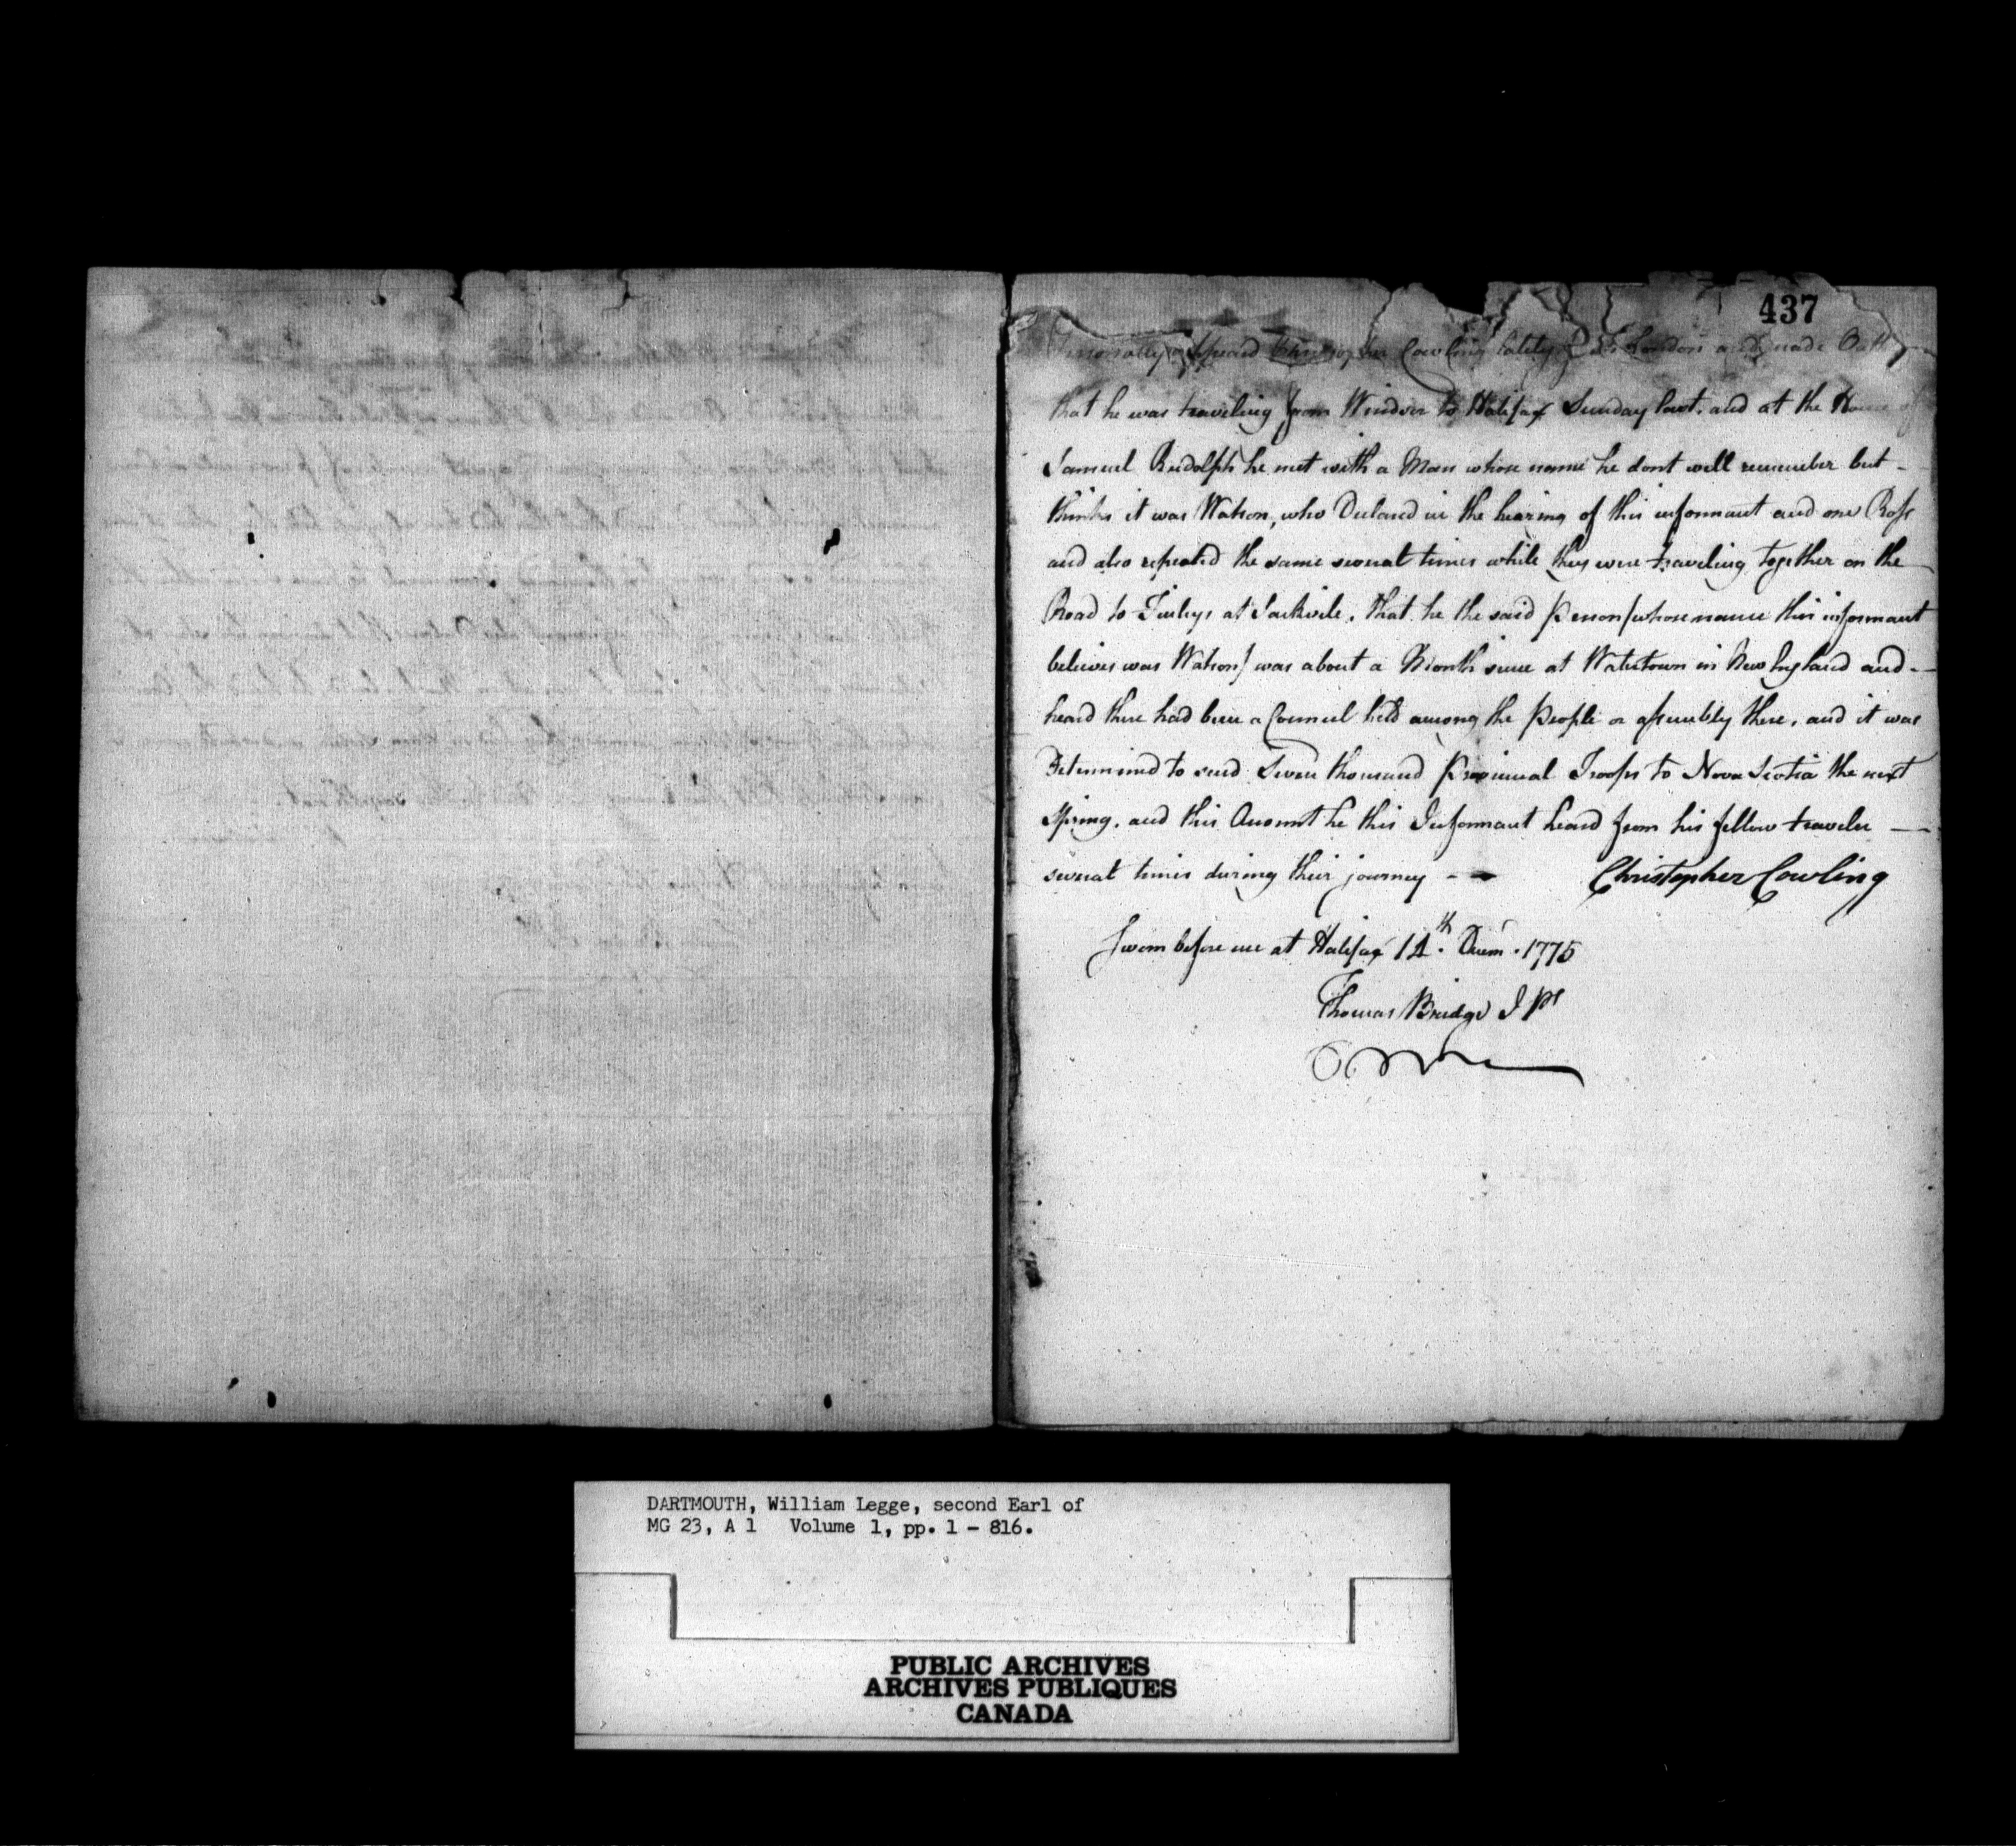 437
Personally appeard Christopher Cowling lately of London and made Oath
that he was traveling from Windsor to Halifax Sunday last, and at the House of
Samuel Rudolph he met with a Man whose name he dont well remember but -
thinks it was Watson, who Declared in the hearing of this informant and one Ross
and also repeated the same several times while they were traveling together on the
Road to at Sackvile, that he the said Person/whose name this informant
believes was Watson/ was about a Month since at Watertown in New England and -
heard there had been a Council held among the People or assembly there, and it was
Determined to send Seven thousand Provincial Troops to Nova Scotia the next
Spring, and this Account he this Informant heard from his fellow traveler —
several times during their journey - -
Christopher Cowling
Sworn before me at Halifax 14th. Decem. 1775
Thomas Bridge J Ps
DARTMOUTH, William Legge, second Earl of
MG 23, A 1 Volume 1, pp. 1 - 816.
PUBLIC ARCHIVES
ARCHIVES PUBLIQUES
CANADA